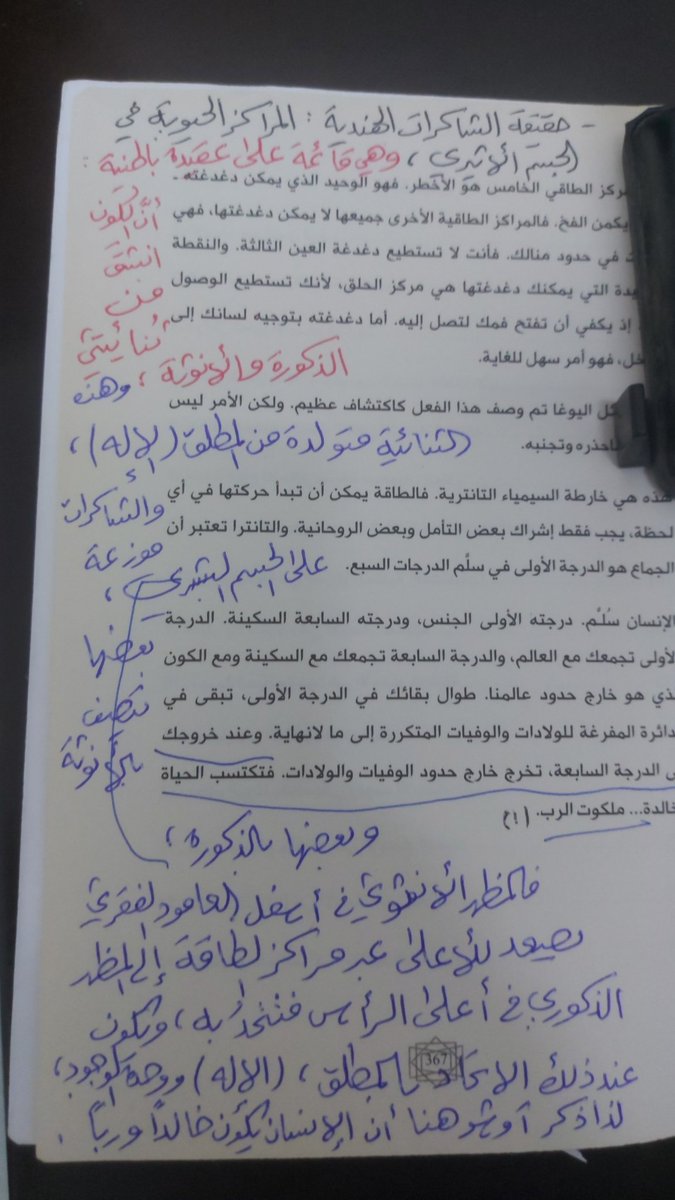 - حقيقة الشاكرات الهندية : المراكز الحيوية في
الجسم الأثيري ، وهي قائمة على عقيدة باطنية :
مركز الطاقي الخامس هو الأخطر. فهو الوحيد الذي يمكن دغدغته.
يكمن الفخ. فالمراكز الطاقية الأخرى جميعها لا يمكن دغدغتها، فهي
أنَّ الكون
في حدود منالك. فأنت لا تستطيع دغدغة العين الثالثة. والنقطة
انشق
يدة التي يمكنك دغدغتها هي مركز الحلق، لأنك تستطيع الوصول
من
إذ يكفي أن تفتح فمك لتصل إليه. أما دغدغته بتوجيه لسانك إلى
ثنائيتي
خل، فهو أمر سهل للغاية.
الذكورة والأنوثة ، وهذه
كل اليوغا تم وصف هذا الفعل كاكتشاف عظيم. ولكن الأمر ليس
فاحذره وتجنبه.
الثنائية متولدة من المطلق (الإله) ،
هذه هي خارطة السيمياء التانترية. فالطاقة يمكن أن تبدأ حركتها في أي
والشاكرات
لحظة، يجب فقط إشراك بعض التأمل وبعض الروحانية. والتانترا تعتبر أن
موزعة
الجماع هو الدرجة الأولى في سلّم الدرجات السبع.
على الجسم البشري ،
الإنسان سُلَّم. درجته الأولى الجنس، ودرجته السابعة السكينة. الدرجة
بعضها
لأولى تجمعك مع العالم، والدرجة السابعة تجمعك مع السكينة ومع الكون
يتصف
لذي هو خارج حدود عالمنا. طوال بقائك في الدرجة الأولى، تبقى في
دائرة المفرغة للولادات والوفيات المتكررة إلى ما لانهاية. وعند خروجك
بالأنوثة
ى الدرجة السابعة، تخرج خارج حدود الوفيات والولادات. فتكتسب الحياة
خالدة... ملكوت الرب. (!)
وبعضها بالذكورة ،
فالمظهر الأنثوي في أسفل العامود الفقري
يصعد للأعلى عبر مراكز لطاقة إلى المظهر
الذكوري في أعلى الرأس فتتحد به ، ويكون
عند ذلك الاتحاد بالمطلق ، (الإله) ووحدة الوجود ،
367
لذا ذكر أوشو هنا أن الإنسان يكون خالداً ورباً .